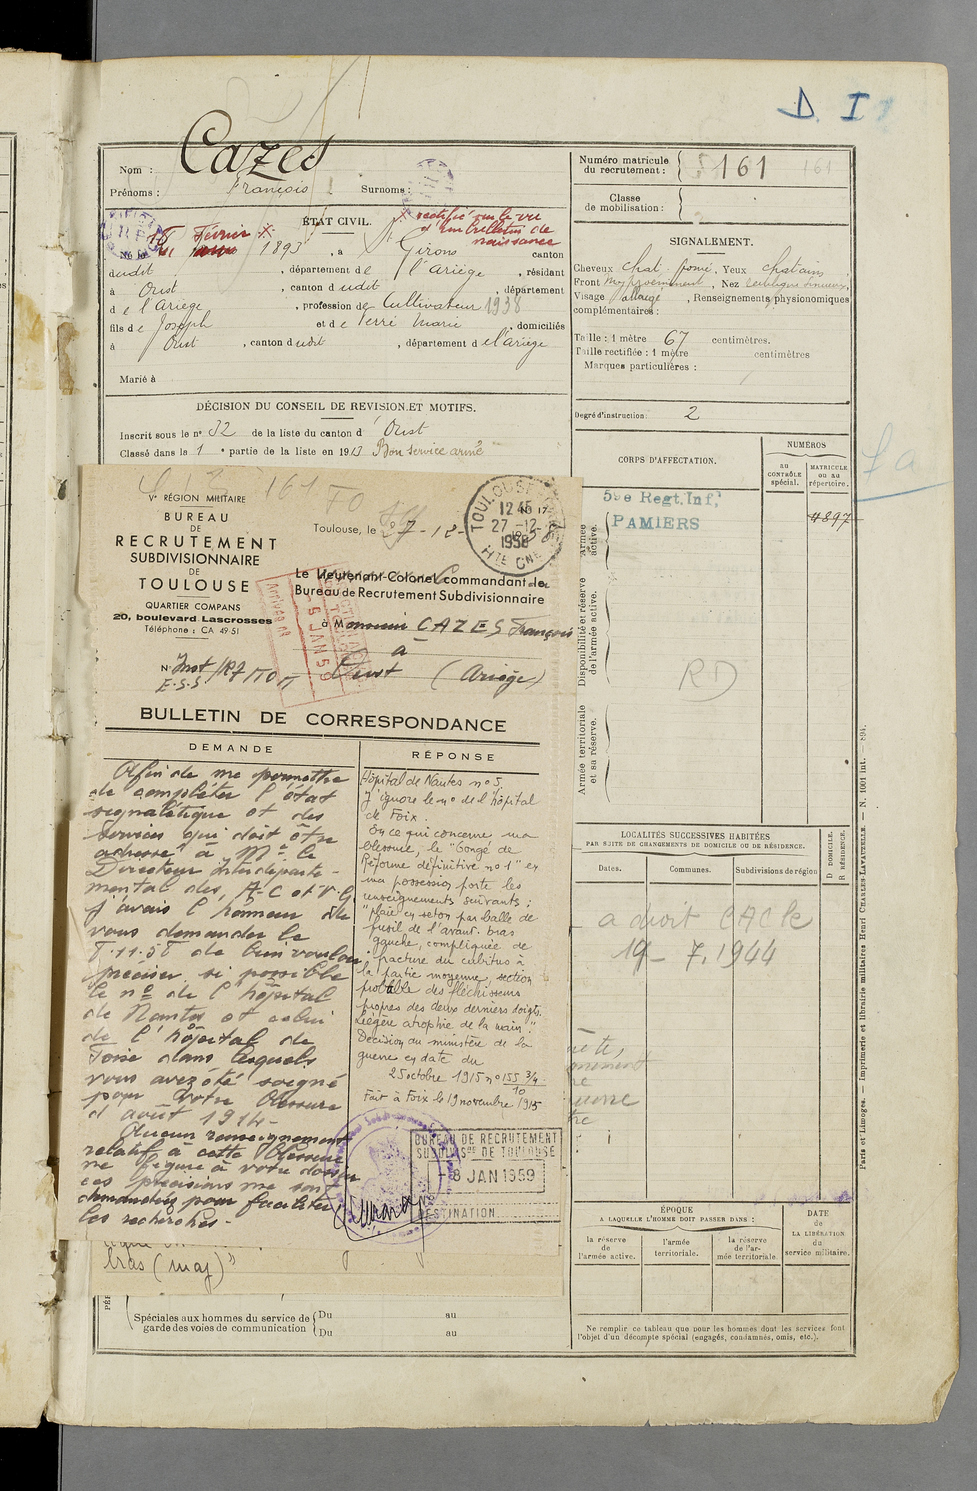 D. I
Nom : Cazes
Prénoms : François Surnoms :
Numéro matricule du recrutement : 161 161
Classe de mobilisation :
ÉTAT CIVIL.
X rectifié sur le vu
d'un bulletin de
naissance
16 Février X 1893, à St Girons canton
dudit, département de l'Ariège, résidant
à Oust, canton dudit, département
de l'Ariège, profession de Cultivateur 1938
fils de Joseph et de Ferré Marie, domiciliés
à Oust, canton dudit, département de l'Ariège
Marié à
SIGNALEMENT.
Cheveux chat. foncé. Yeux chatains
Front moy. proéminent, Nez rectiligne sinueux,
Visage allongé, Renseignements physionomiques
complémentaires :
Taille : 1 mètre 67 centimètres.
Taille rectifiée : 1 mètre centimètres
Marques particulières :
Degré d'instruction : 2
DÉCISION DU CONSEIL DE REVISION ET MOTIFS.
Inscrit sous le n° 32 de la liste du canton d'Oust
Classé dans la 1e partie de la liste en 1913 Bon service armé
CORPS D'AFFECTATION.
NUMÉROS
AU CONTRÔLE spécial.
MATRICULE ou au répertoire.
Armée active.
59e Regt. Inf.
PAMIERS
4897
Disponibilité et réserve de l'armée active.
RD
Armée territoriale et sa réserve.
161 FO
Ve RÉGION MILITAIRE
BUREAU
DE
RECRUTEMENT
SUBDIVISIONNAIRE
DE
TOULOUSE
QUARTIER COMPANS
20, boulevard Lascrosses
Téléphone : CA 49-51
Toulouse, le 27-12-58
TOULOUSE
12 45
27 -12
1958
HTE GNE
Le Lieutenant-Colonel commandant le
Bureau de Recrutement Subdivisionnaire
à Monsieur CAZES François
à
Oust (Ariège)
-5 JAN 59
BULLETIN DE CORRESPONDANCE
DEMANDE
Afin de me permettre
de compléter l'état
signalétique et des
services qui doit être
adressé à Mr le
Directeur Interdéparte-
mental des A-C et V.G.
j'avais l'honneur de
vous demander le
8.11.58 de bien vouloir
préciser si possible
le n° de l'hôpital
de Nantes et celui
de l'hôpital de
Foix dans lesquels
vous avez été soigné
pour votre blessure
d'août 1914-
Aucun renseignement
relatif à cette blessure
ne figure à votre dossier
ces précisions me sont
demandées pour faciliter
les recherches.-
RÉPONSE
Hôpital de Nantes n° 5,
J'ignore le n° de l'hôpital
de Foix.
En ce qui concerne ma
blessure, le "Congé de
Réforme définitive n° 1" en
ma possession porte les
renseignements suivants :
"plaie en seton par balle de
fusil de l'avant-bras
gauche, compliquée de
fracture du cubitus à
la partie moyenne, section
probable des fléchisseurs
propres des deux derniers doigts.
Légère atrophie de la main".
Décision du ministère de la
guerre en date du
25 octobre 1915 n° 155 3/4
10
Fait à Foix le 19 novembre 1915
BUREAU DE RECRUTEMENT
SUBDIVISRE DE TOULOUSE
-8 JAN 1959
DESTINATION
bras (maj)"
LOCALITÉS SUCCESSIVES HABITÉES
PAR SUITE DE CHANGEMENTS DE DOMICILE OU DE RÉSIDENCE.
Dates. Communes. Subdivisions de région
D DOMICILE.
R RÉSIDENCE.
a droit CAC le
19-7.1944
ÉPOQUE
A LAQUELLE L'HOMME DOIT PASSER DANS :
la réserve de l'armée active.
l'armée territoriale.
la réserve de l'armée territoriale.
DATE
de
LA LIBÉRATION
du
service militaire.
Spéciales aux hommes du service de garde des voies de communication
Du au
Du au
Ne remplir ce tableau que pour les hommes dont les services font
l'objet d'un décompte spécial (engagés, condamnés, omis, etc.).
Paris et Limoges. — Imprimerie et librairie militaires Henri CHARLES-LAVAUZELLE. — N. 1001 int. - 894.